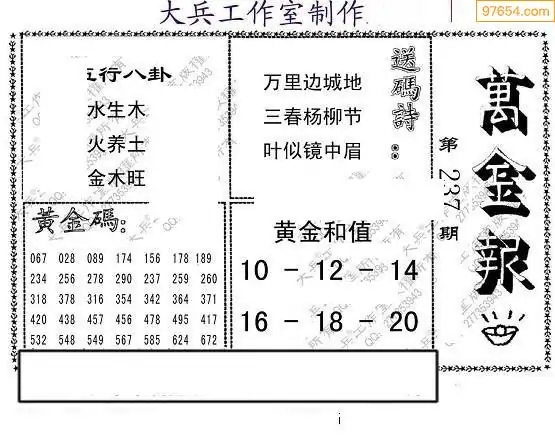 大兵工作室制作
97654.com
五行八卦
水生木
火养土
金木旺
送碼詩:
万里边城地
三春杨柳节
叶似镜中眉
萬金報
第237期
黄金碼:
067 028 089 174 156 178 189
234 256 278 290 237 259 260
318 378 316 354 342 364 371
420 438 457 456 478 495 417
532 548 549 567 585 624 672
黄金和值
10 - 12 - 14
16 - 18 - 20
i